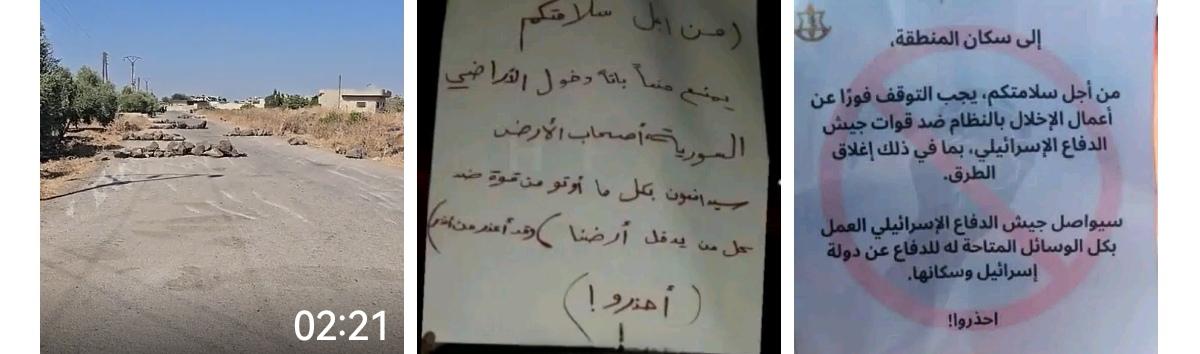 02:21
(من اجل سلامتكم
يمنع منعاً باتاً دخول الأراضي
السورية أصحاب الأرض
سيدافعون بكل ما أوتو من قوة ضد
كل من يدخل أرضنا (وقد أعذر من أنذر)
(أحذرو!)
!
إلى سكان المنطقة،
من أجل سلامتكم، يجب التوقف فورًا عن
أعمال الإخلال بالنظام ضد قوات جيش
الدفاع الإسرائيلي، بما في ذلك إغلاق
الطرق.
سيواصل جيش الدفاع الإسرائيلي العمل
بكل الوسائل المتاحة له للدفاع عن دولة
إسرائيل وسكانها.
احذروا!